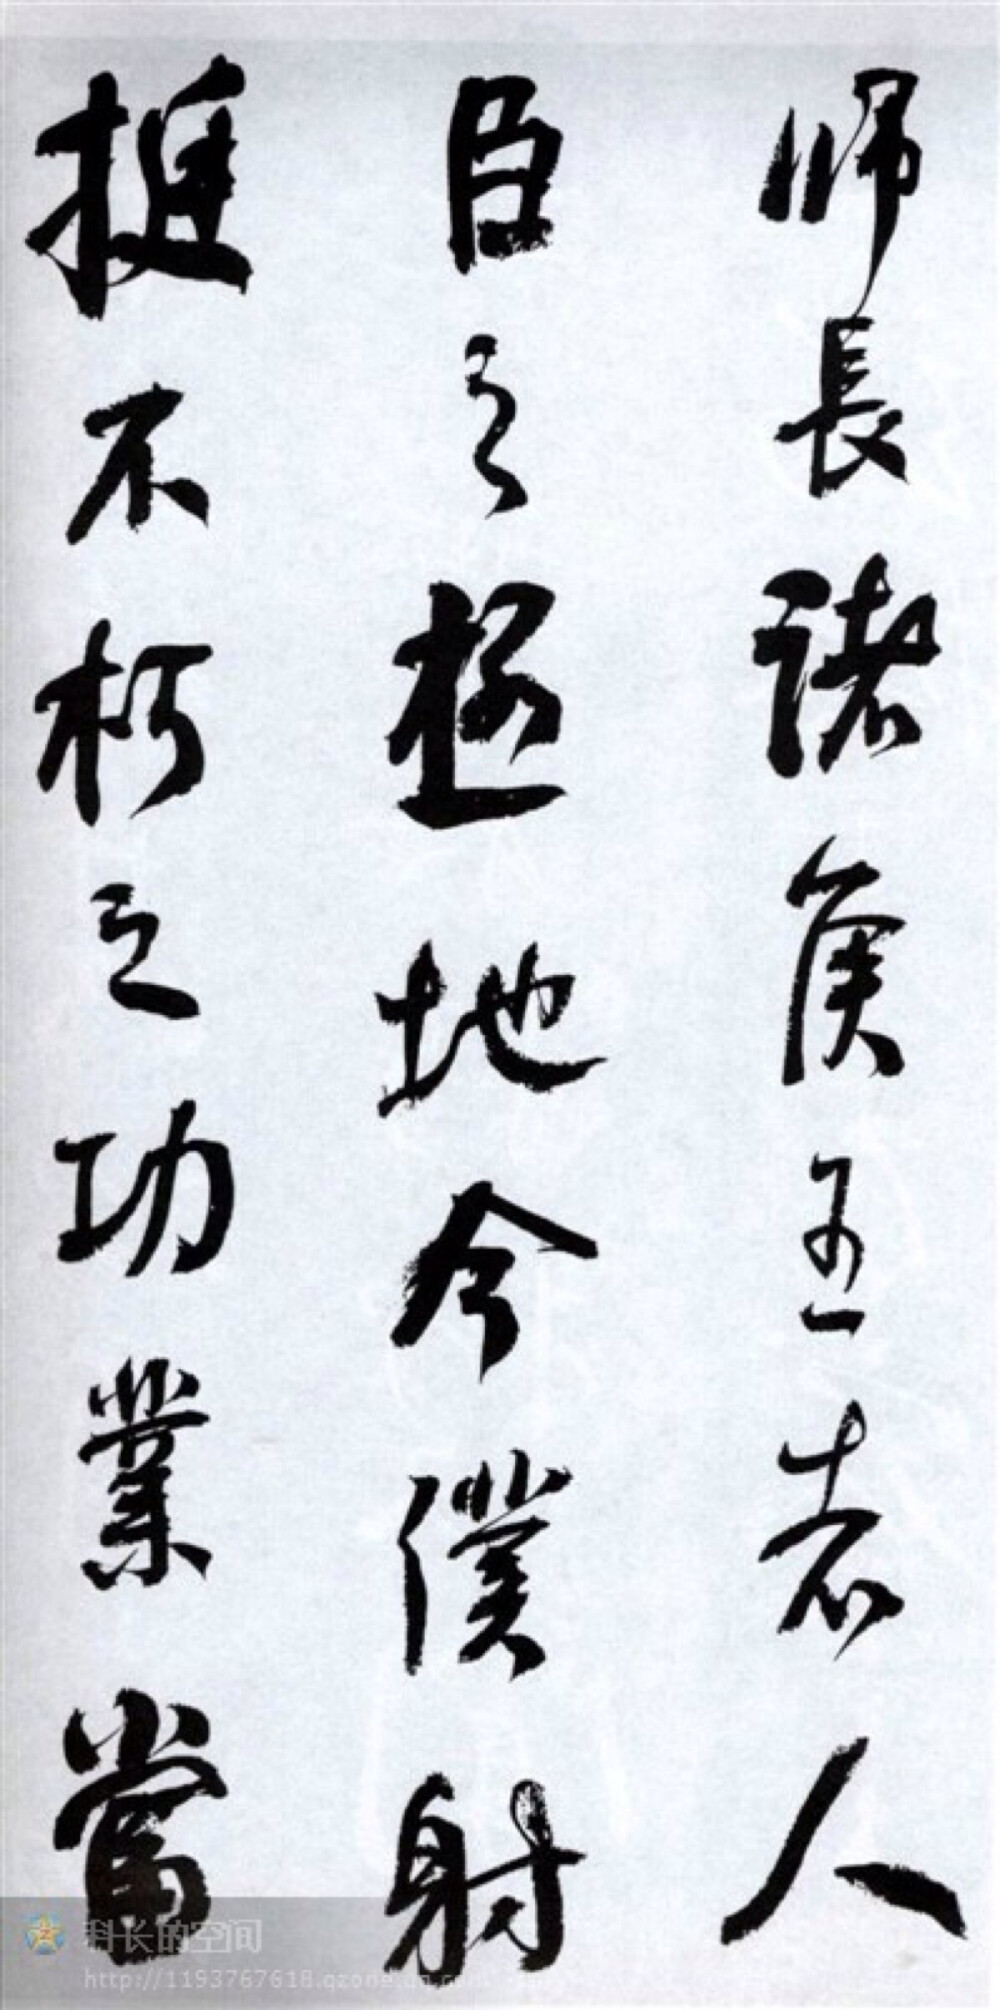 师長諸侯王者人
臣之極地今僕射
挺不朽之功業當
料长的空间
http://1193767618.qzone.qq.com